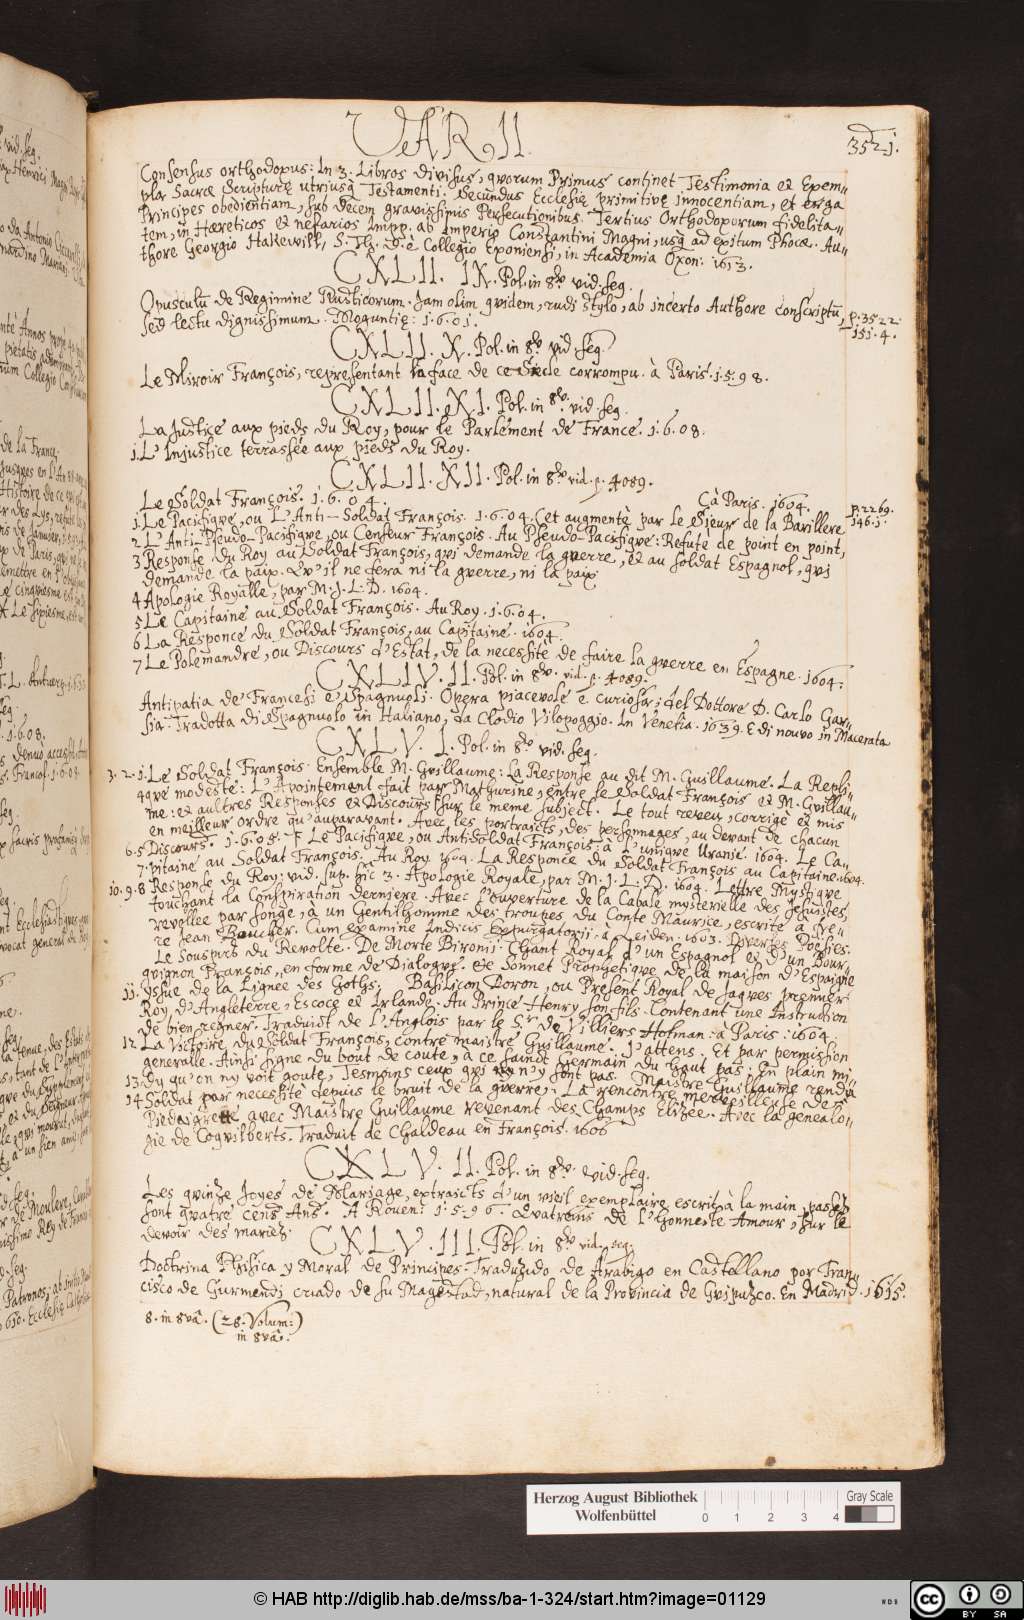 VARII.
3521.
Consensus orthodopus: In 3. Libros Divisus, qvorum Primus continet Testimonia et Exem-
pla Sacræ Scripturę utriusq̨ Testamenti. Secundus Ecclesię primitivę Innocentiam, et erga
Principes obedientiam, sub decem gravissimis Persecutionibus. Tertius Orthodoxorum fidelita-
tem, in Hæreticos et nefarios Impp. ab Imperio Constantini Magni, usq̨ ad exitum Phocæ. Au-
thore Georgio Hakewill, S. Th. D. è Collegio Exoniensi, in Academia Oxon: 1613.
CXLII. IX. Pol. in 8vo vid. seg.
Opusculū de Regimine Rusticorum. Jam olim qvidem, rudi stylo, ab incerto Authore conscriptū,
sed lectu dignissimum. Moguntię: 1.6.01.
p. 3522.
151.4.
CXLII. X. Pol. in 8vo vid. seg.
Le Miroir François, representant la face de ce Siecle corrompu. à Paris. 1.5.98.
CXLII. XI. Pol. in 8vo. vid. seg.
La Justice aux pieds du Roy, pour le Parlement de France. 1.6.08.
1. L'Injustice terrassée aux pieds du Roy.
CXLII. XII. Pol. in 8vo vid. p. 4089.
Le Soldat François. 1.6.04.
(à Paris. 1604.
1. Le Pacifiqve, ou L'Anti-Soldat François. 1.6.04. (et augmentè par le Sieur de la Barillere
p. 2269.
146.1.
2 L'Anti-Pseudo-Pacifiqve, ou Censeur François. Au Pseudo-Pacifiqve: Refutè de point en point,
3 Response du Roy au Soldat François, qvi demande la gverre, et au Soldat Espagnol, qvi
demande la paix. Qv'il ne fera ni la gverre, ni la paix
4 Apologie Royalle, par M. J. L. D. 1604.
5 Le Capitaine au Soldat François. Au Roy. 1.6.04.
6 La Responce du Soldat François, au Capitaine. 1604.
7 Le Polemandre, ou Discours d'Estat, de la necessitè de faire la gverre en Espagne. 1604.
CXLIV. II. Pol. in 8vo. vid. p. 4089.
Antipatia de' Francesi e Spagnuoli. Opera piacevole e curiosa; del Dottore D. Carlo Gar-
sia. Tradotta di Spagnuolo in Italiano, da Clodio Vilopoggio. In Venetia. 1639. E di nouvo in Macerata
CXLV. I. Pol. in 8vo vid. seg.
3. 2. 1. Le Soldat François. Ensemble M. Gvillaume: La Response au dit M. Guillaume. La Repli-
4 qve modeste: L'Apointement fait par Mathurine, entre le Soldat François et M. Gvillau-
me: et aultres Responses et Discours sur le meme subject. Le tout reveu, corrigè et mis
en meilleur ordre qu'auparavant. Avec les portraicts, des personnages, au devant de chacun
6. 5. Discours. 1.6.05. Le Pacifiqve, ou AntiSoldat François; à l'uniqve Uranie. 1604. Le Ca-
7. pitaine au Soldat François. Au Roy 1604. La Responce du Soldat François au Capitaine. 1604.
10. 9. 8 Response du Roy; vid. sup. hic 3. Apologie Royale, par M. J. L. D. 1604. Lettre Mystiqve
touchant la Conspiration derniere. Avec l'ouverture de la Cabale mysterielle des Jesuistes,
revelee par songe, à un Gentilhomme des trouppes du Conte Maurice, escrite à Fre-
re Jean Boucher. Cum examine Indicis Expurgatorii. à Leiden. 1603. Diverses Poësies.
Le Souspirs du Revolte. De Morte Bironii. Chant Royal d'un Espagnol et d'un Bour-
gvignon François, en forme de Dialogve. Se Sonnet Prophetiqve de la maison d'Espaigne
11. yssue de la Lignee des Goths. Basilicon Doron, ou Present Royal de Jaqves premier
Roy d'Angleterre, Escoce et Irlande. Au Prince Henry son fils. Contenant une Instruction
de bien regner. Traduict de l'Anglois par le Sr de Villiers Hotman: à Paris: 1604.
12. La Victoire du Soldat François, contre maistre Guillaume. J'attens. Et par permission
generalle. Ainsi signe du bout de coute, à ce sainct Germain du haut pas. En plain mi-
13. dy qu'on ny voit goute, Tesmoins ceux qvi n'y sont pas. Maistre Guillaume rendu
14 Soldat par necessitè depuis le bruit de la gverre. La rencontre merveilleuse de
Piedaigrette avec Maistre Guillaume revenant des Champs Elizee. Avec la genealo-
gie de Coqvilberts. Traduit de Chaldeau en François. 1606
CXLV. II. Pol. in 8vo. vid. seg.
Les qvinze Joyes de Mariage, extraicts d'un vieil exemplaire escrit à la main, passez
sont qvatre cens Ans. A Rouen. 1.5.96. Qvatreins de l'Honneste Amour, sur le
devoir des mariez.
CXLV. III. Pol. in 8vo vid. seg.
Doctrina Phisica y Moral de Principes. Traduzido de Arabigo en Castellano por Fran-
cisco de Gurmendi criado de su Magestad, natural de la Provincia de Gvipuzco. En Madrid. 1615.
8. in 8vâ. (28. Volum:)
in 8vâ.
Herzog August Bibliothek
Wolfenbüttel
0 1 2 3 4
Gray Scale
© HAB http://diglib.hab.de/mss/ba-1-324/start.htm?image=01129
WDB
cc BY SA